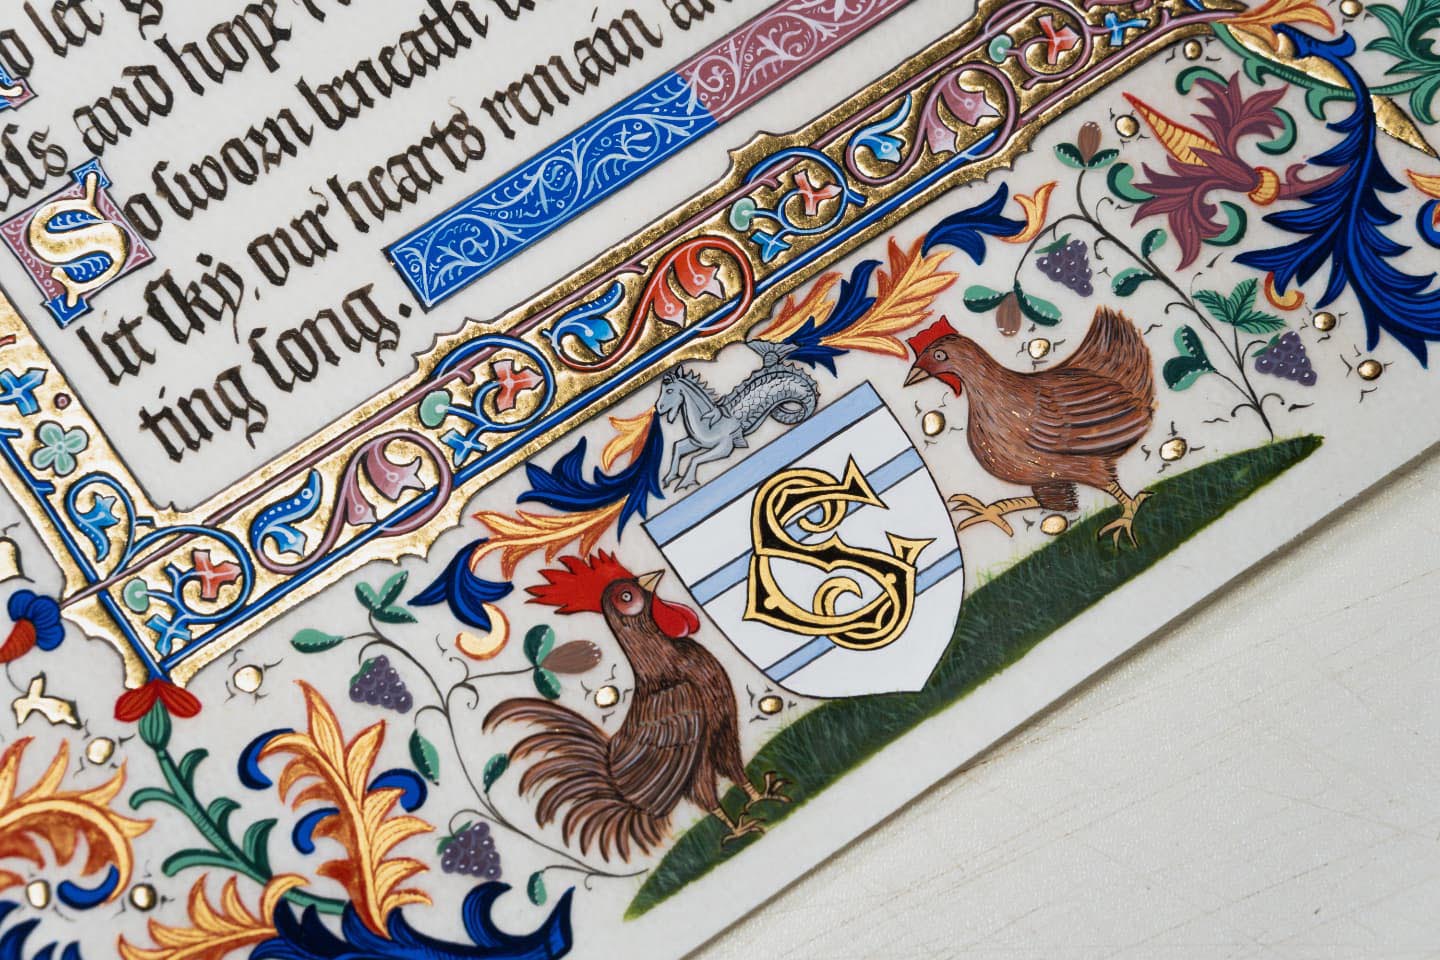 o let's
and hope
So sworn beneath
let sky, our hearts remain
ting song.
SC